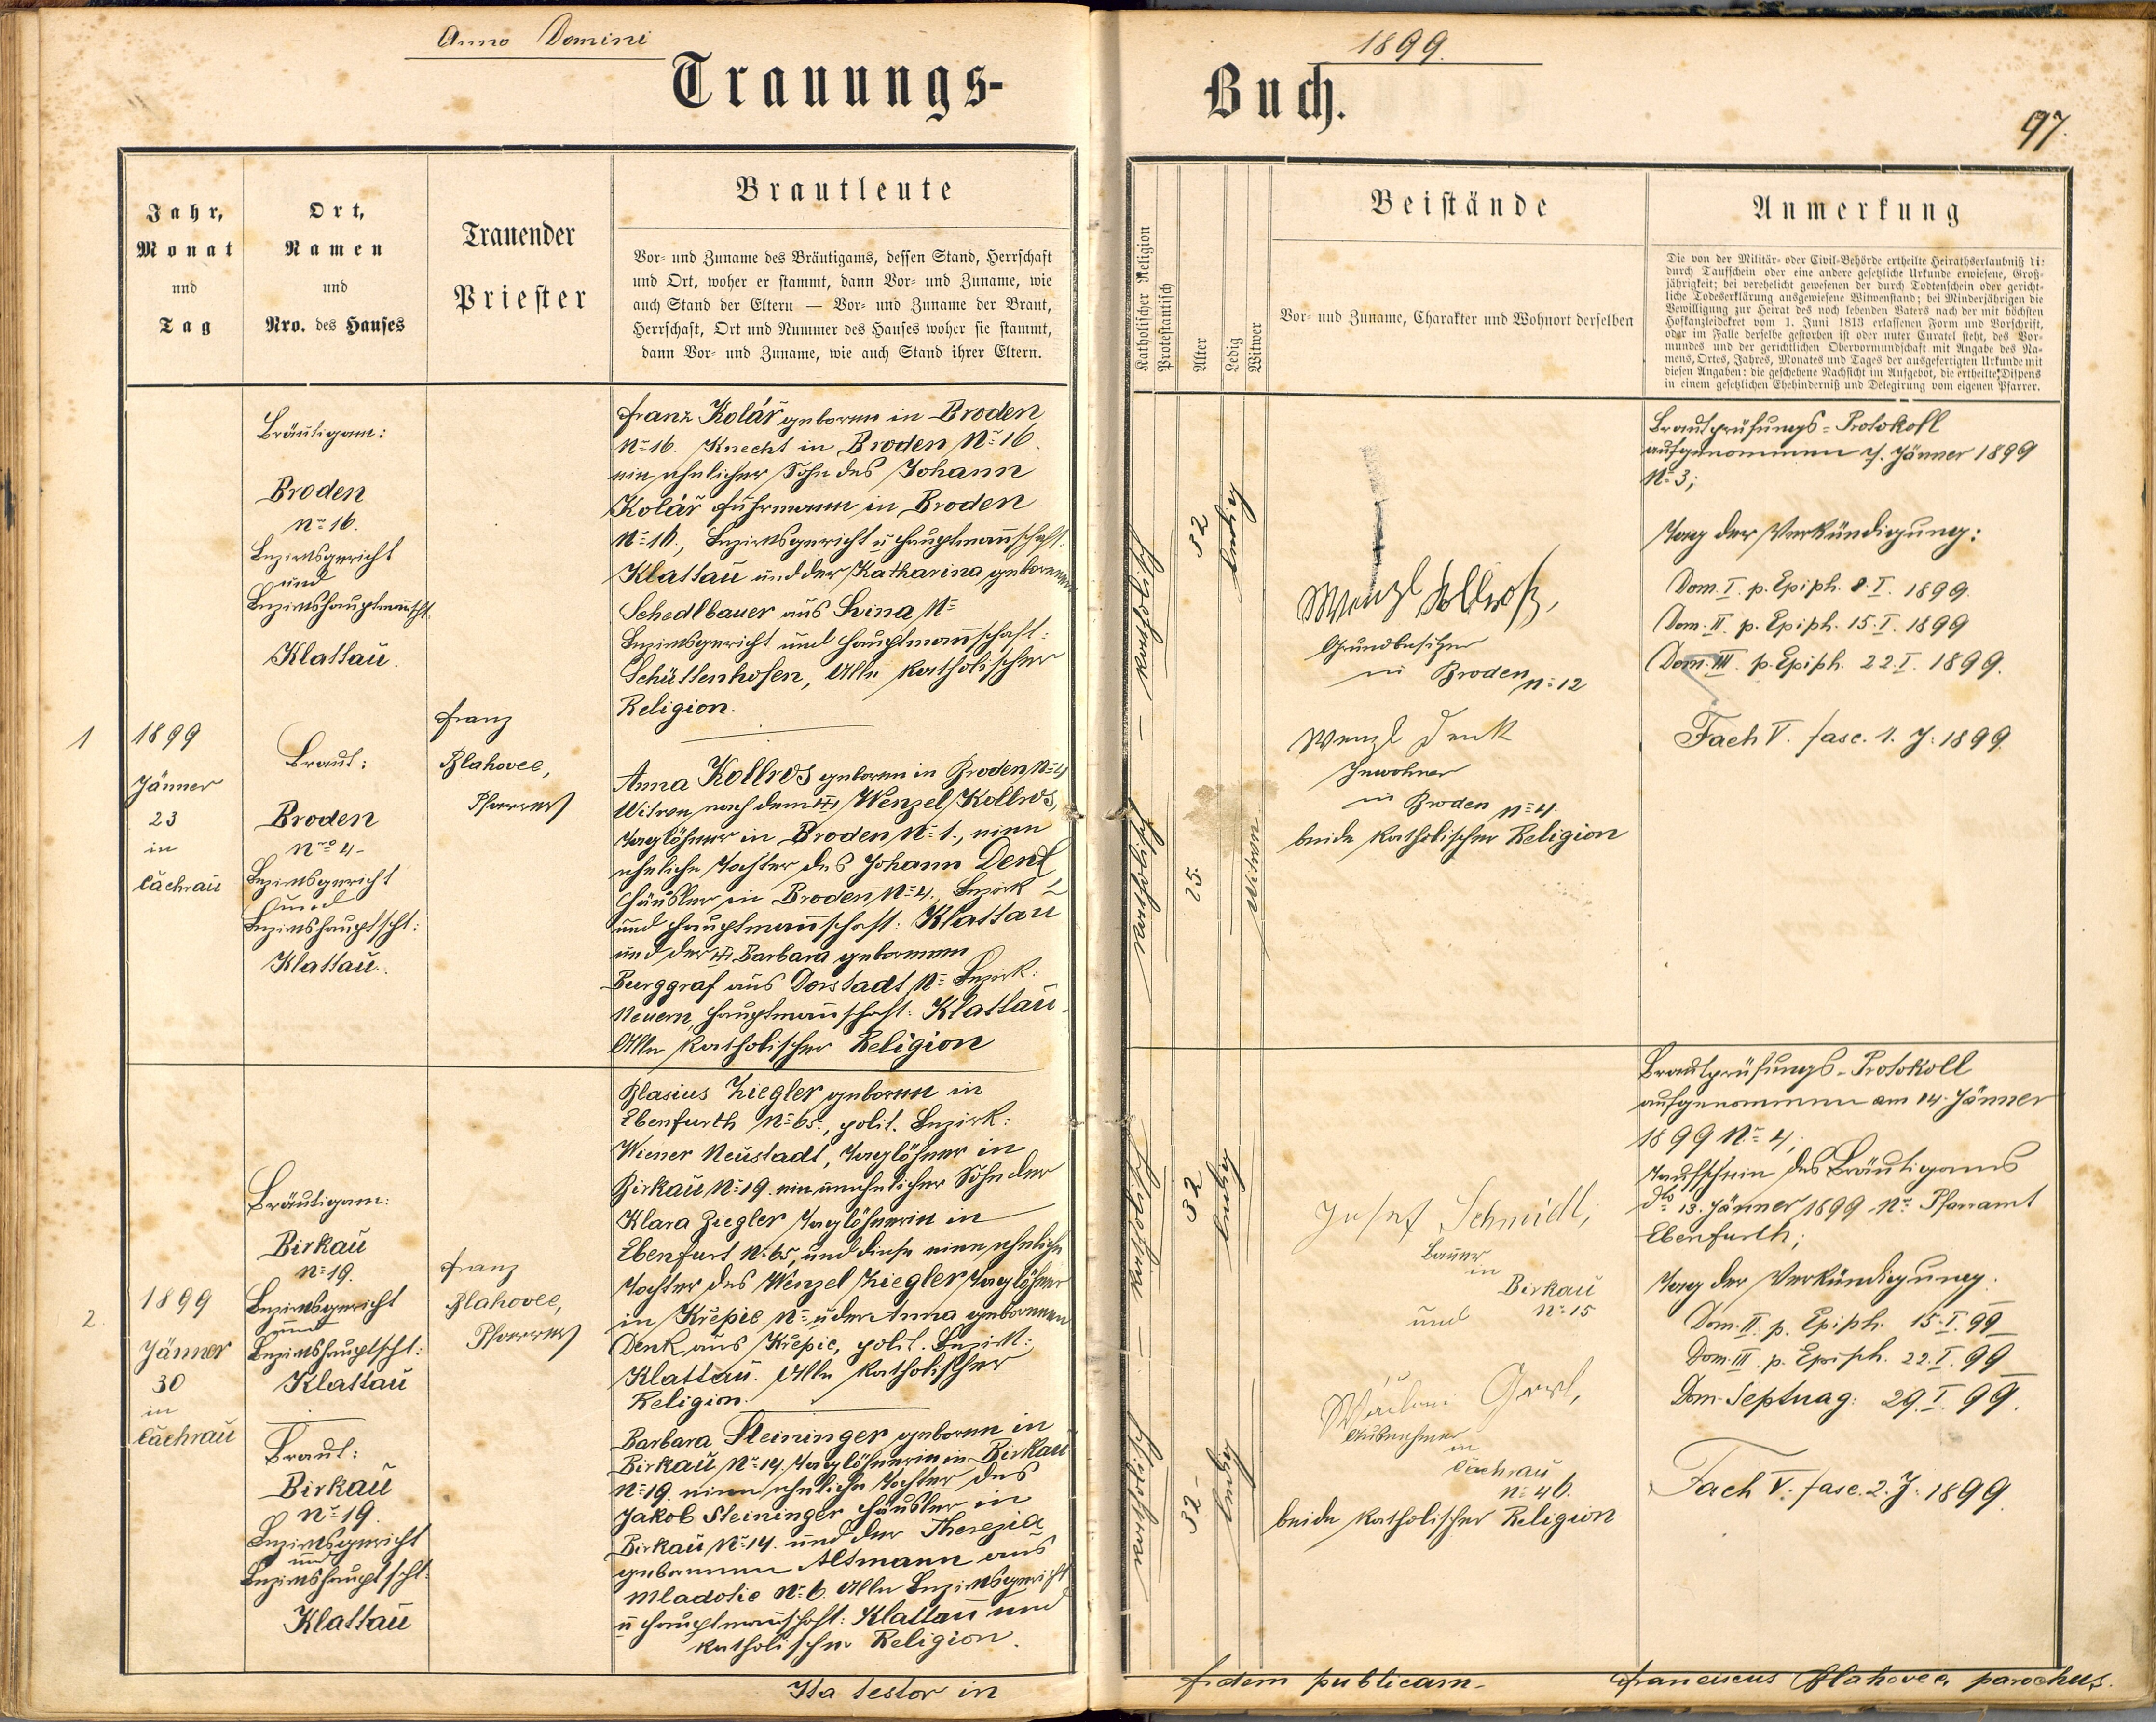 Anno Domini
1899.
Trauungs-
Buch.
97.
Jahr,
Monat
und
Tag
Ort,
Namen
und
Nro. des Hauses
Trauender
Priester
Brautleute
Vor- und Zuname des Bräutigams, dessen Stand, Herrschaft
und Ort, woher er stammt, dann Vor- und Zuname, wie
auch Stand der Eltern — Vor- und Zuname der Braut,
Herrschaft, Ort und Nummer des Hauses woher sie stammt,
dann Vor- und Zuname, wie auch Stand ihrer Eltern.
Katholischer Religion
Protestantisch
Alter
Ledig
Witwer
Beistände
Vor- und Zuname, Charakter und Wohnort derselben
Anmerkung
Die von der Militär- oder Civil-Behörde ertheilte Heirathserlaubniß di:
durch Taufschein oder eine andere gesetzliche Urkunde erwiesene, Groß-
jährigkeit; bei verehelicht gewesenen der durch Todtenschein oder gericht-
liche Todeserklärung ausgewiesene Witwenstand; bei Minderjährigen die
Bewilligung zur Heirat des noch lebenden Vaters nach der mit höchsten
Hofkanzleidekret vom 1. Juni 1813 erlassenen Form und Vorschrift,
oder im Falle derselbe gestorben ist oder unter Curatel steht, des Vor-
mundes und der gerichtlichen Obervormundschaft mit Angabe des Na-
mens, Ortes, Jahres, Monates und Tages der ausgefertigten Urkunde mit
diesen Angaben: die geschehene Nachsicht im Aufgebot, die ertheilte Dispens
in einem gesetzlichen Ehehinderniß und Delegirung vom eigenen Pfarrer.
1
1899
Jänner
23
in
Cachrau
Bräutigam:
Broden
N= 16.
Bezirksgericht
und
Bezirkshauptmannscht.
Klattau.
Braut:
Broden
Nro 4-
Bezirksgericht
und
Bezirkshauptscht:
Klattau.
Franz
Blahovec,
Pfarrer
Franz Kolář geboren in Broden
N= 16. Knecht in Broden N= 16.
ein ehelicher Sohn des Johann
Kolář Fuhrmann in Broden
N= 16., Bezirksgericht u Hauptmannschaft.
Klattau und der Katharina geborenen
Schedlbauer aus N=
Bezirksgericht und Hauptmannschaft:
Schüttenhofen, Alle katholischer
Religion.
Anna Kollros geboren in Broden N= 4
Witwe nach dem Wenzel Kollros,
Taglöhner in Broden N= 1., eine
eheliche Tochter des Johann Denk
Häusler in Broden N= 4. Bezirk
und Hauptmannschaft: Klattau
und der Barbara geborenen
Burggraf aus Dorstadt N= Bezirk:
Neuern, Hauptmannschaft: Klattau.
Alle katholischer Religion
katholisch
32
ledig
katholisch
25.
Witwe
Wenzl Kollroß,
Grundbesitzer
in Broden N= 12
Wenzl Denk
Inwohner
in Broden N= 4.
beide katholischer Religion
Brautprüfungs-Protokoll
aufgenommen Jänner 1899
N= 3;
Tag der Verkündigung:
Dom. I p. Epiph. 8. I. 1899.
Dom. II p. Epiph. 15. I. 1899
Dom. III. p. Epiph. 22. I. 1899.
Fach V. fasc. 1. J. 1899.
2.
1899
Jänner
30
in
Cachrau
Bräutigam:
Birkau
N= 19.
Bezirksgericht
und
Bezirkshauptscht:
Klattau
Braut:
Birkau
N= 19.
Bezirksgericht
und
Bezirkshauptscht:
Klattau
Franz
Blahovec,
Pfarrer
Blasius Ziegler geboren in
Ebenfurth N= 65., polit. Bezirk:
Wiener Neustadt, Taglöhner in
Birkau N= 19. ein unehelicher Sohn der
Klara Ziegler Taglöhnerin in
Ebenfurt N= 65, und diese eine eheliche
Tochter des Wenzel Ziegler Taglöhner
in Křepic N= u der Anna geborenen
Denk aus Křepic, polit. Bezirk:
Klattau. Alle katholischer
Religion.
Barbara Steininger geboren in
Birkau N= 14. Taglöhnerin in Birkau
N= 19. eine eheliche Tochter des
Jakob Steininger Häusler in
Birkau N= 14. und der Therezia
geborenen Altmann aus
Mladotic N= 6. Alle Bezirksgericht
u Hauptmannschaft: Klattau und
katholischer Religion.
katholisch
32
ledig
katholisch
32-
ledig
Josef Schneidl,
Bauer
in
Birkau
N= 15
und
Ausnehmer
in
Cachrau
N= 46.
beide katholischer Religion
Brautprüfungs-Protokoll
aufgenommen am 14. Jänner
1899 N= 4;
Taufschein des Bräutigams
dto 13. Jänner 1899 N= Pfarramt
Ebenfurth;
Tag der Verkündigung.
Dom. II. p. Epiph. 15. I. 99
Dom. III. p. Epiph. 22. I. 99
Dom. Septuag: 29. I. 99.
Fach V. fasc. 2. J. 1899.
Ita testor in
fidem publicam.
Franciscus Blahovec, parochus.